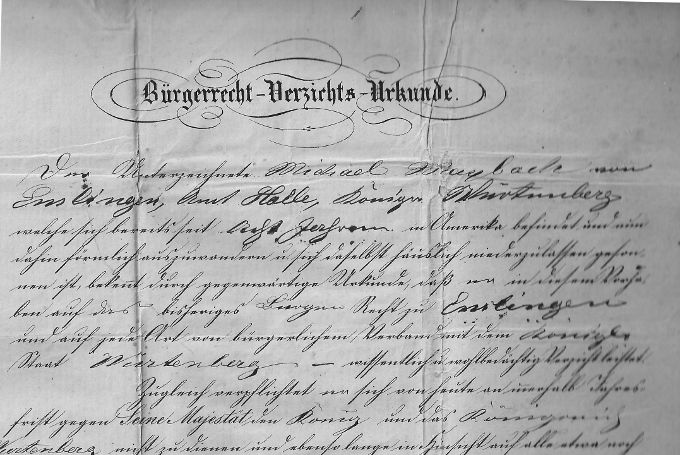 Bürgerrecht-Verzichts-Urkunde.
Der Unterzeichnete Michael Maybach von
Enslingen, Amt Halle, Königr Würtenberg
welche sich bereits seit Acht Jahren in Amerika befindet und nun
dahin förmlich auszuwandern u sich daselbst häuslich niederzulassen geson-
nen ist, bekent durch gegenwärtige Urkunde, daß er in diesem Vorha-
ben auf das bisheriges Buerger Recht zu Enslingen
und auf jede Art von bürgerlichem Verband mit dem Königr
Staat Würtenberg — wissentlich u wohlbedächtig Verzicht leistet.
Zugleich verpflichtet er sich von heute an inerhalb Jahres-
frist gegen Seine Majestät den König und das Königreich
Würtenberg nicht zu dienen und ebenso lange in Hinsicht auf alle etwa noch